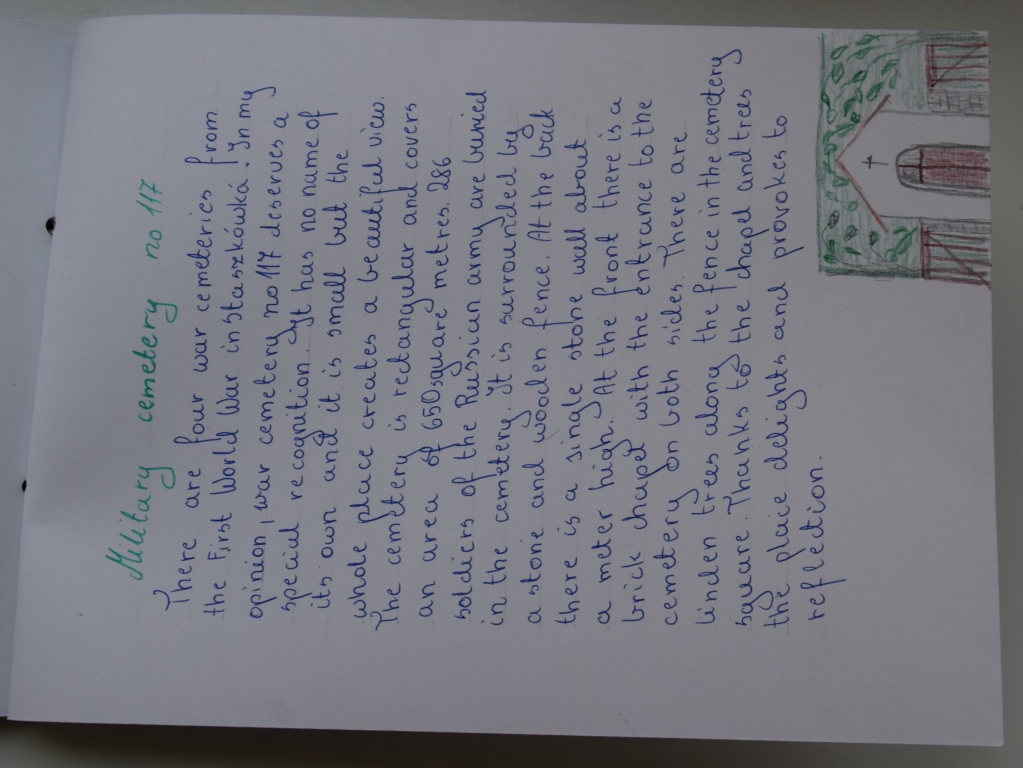 Military cemetery no 117
There are four war cemeteries from
the First World War in Staszkówka. In my
opinion, war cemetery no 117 deserves a
special recognition. It has no name of
its own and it is small but the
whole place creates a beautiful view.
The cemetery is rectangular and covers
an area of 650 square metres. 286
soldiers of the Russian army are buried
in the cemetery. It is surrounded by
a stone and wooden fence. At the back
there is a single stone wall about
a meter high. At the front there is a
brick chapel with the entrance to the
cemetery on both sides. There are
linden trees along the fence in the cemetery
square. Thanks to the chapel and trees
the place delights and provokes to
reflection.